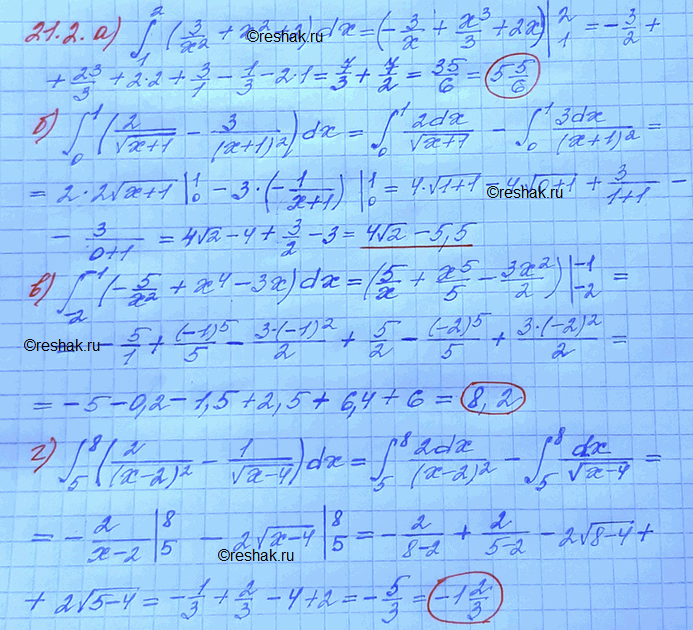 21.2. а) ∫₁² (3/x² + x² + 2) dx = (-3/x + x³/3 + 2x) |₁² = -3/2 +
+ 2³/3 + 2·2 + 3/1 - 1/3 - 2·1 = 7/3 + 7/2 = 35/6 = 5 5/6
©reshak.ru
б) ∫₀¹ (2/√(x+1) - 3/(x+1)²) dx = ∫₀¹ 2dx/√(x+1) - ∫₀¹ 3dx/(x+1)² =
= 2·2√(x+1) |₀¹ - 3·(-1/(x+1)) |₀¹ = 4·√(1+1) - 4√(0+1) + 3/(1+1) -
©reshak.ru
- 3/(0+1) = 4√2 - 4 + 3/2 - 3 = 4√2 - 5,5
в) ∫₋₂⁻¹ (-5/x² + x⁴ - 3x) dx = (5/x + x⁵/5 - 3x²/2) |₋₂⁻¹ =
©reshak.ru - 5/1 + (-1)⁵/5 - 3·(-1)²/2 + 5/2 - (-2)⁵/5 + 3·(-2)²/2 =
= -5 - 0,2 - 1,5 + 2,5 + 6,4 + 6 = 8,2
г) ∫₅⁸ (2/(x-2)² - 1/√(x-4)) dx = ∫₅⁸ 2dx/(x-2)² - ∫₅⁸ dx/√(x-4) =
= -2/(x-2) |₅⁸ - 2√(x-4) |₅⁸ = -2/(8-2) + 2/(5-2) - 2√(8-4) +
©reshak.ru
+ 2√(5-4) = -1/3 + 2/3 - 4 + 2 = -5/3 = -1 2/3